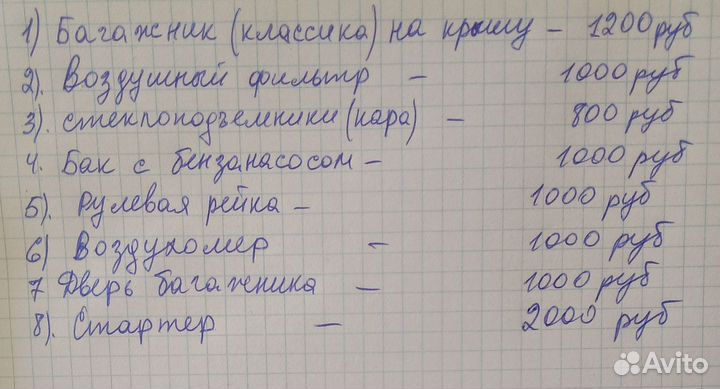 1) Багажник (классика) на крышу - 1200 руб
2). Воздушный фильтр - 1000 руб
3). стеклоподъемники (пара) - 800 руб
4. Бак с бензанасосом - 1000 руб
5). Рулевая рейка - 1000 руб
6) Воздухомер - 1000 руб
7 Дверь багажника - 1000 руб
8). Стартер - 2000 руб
Avito